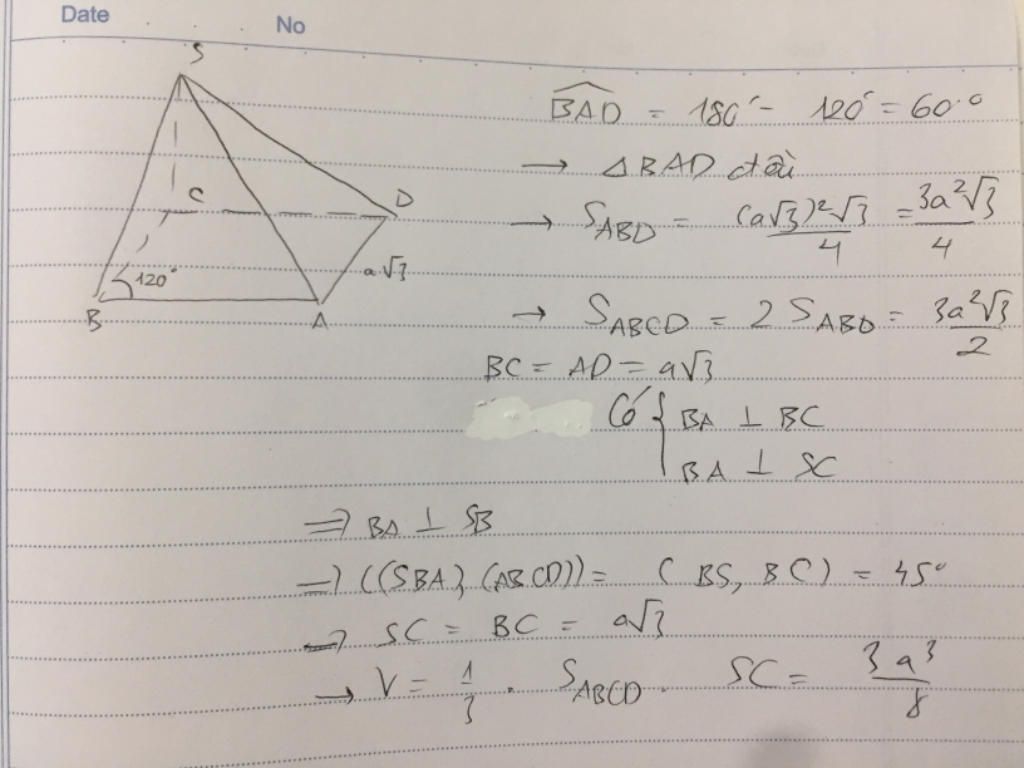 Date
No
S
C
D
120°
a√3
B
A
BAD = 180° - 120° = 60°
→ △BAD đều
→ S_ABD = (a√3)²√3 / 4 = 3a²√3 / 4
→ S_ABCD = 2 S_ABD = 3a²√3 / 2
BC = AD = a√3
Có { BA ⊥ BC
BA ⊥ SC
⇒ BA ⊥ SB
⇒ ((SBA), (ABCD)) = (BS, BC) = 45°
⇒ SC = BC = a√3
→ V = 1/3 . S_ABCD . SC = 3a³ / 8